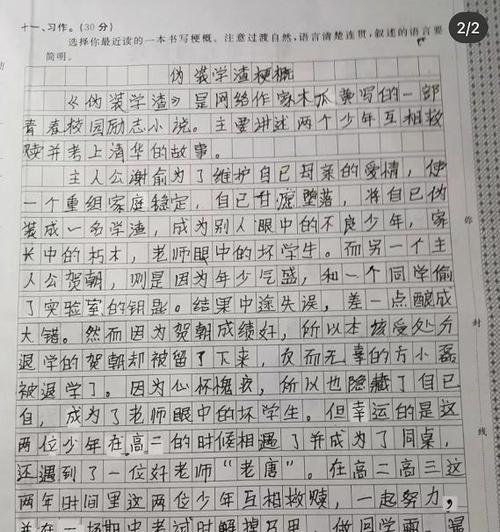 2/2
十一、习作。(30分)
选择你最近读的一本书写梗概。注意过渡自然,语言清楚连贯,叙述的语言要
简明。
伪装学渣梗概
《伪装学渣》是网络作家木瓜黄写的一部
青春校园励志小说。主要讲述两个少年互相救
赎并考上清华的故事。
主人公谢俞为了维护自己母亲的爱情,使
一个重组家庭稳定,自己甘愿堕落,将自己伪
装成一名学渣,成为别人眼中的不良少年,家
长中的朽木,老师眼中的坏学生。而另一个主
人公贺朝,则是因为年少气盛,和一个同学偷
了实验室的钥匙。结果中途失误,差一点酿成
大错。然而因为贺朝成绩好,所以本该受处分
退学的贺朝却被留了下来,反而无辜的方小磊
被退学了。因为心怀愧疚,所以也隐藏了自己
自,成为了老师眼中的坏学生。但幸运的是这
两位少年在高二的时候相遇了并成为了同桌,
还遇到了一位好老师"老唐"。在高二高三这
两年时间里这两位少年互相救赎,一起努力,
并在一场期中考试时解掉马甲
你
封
线